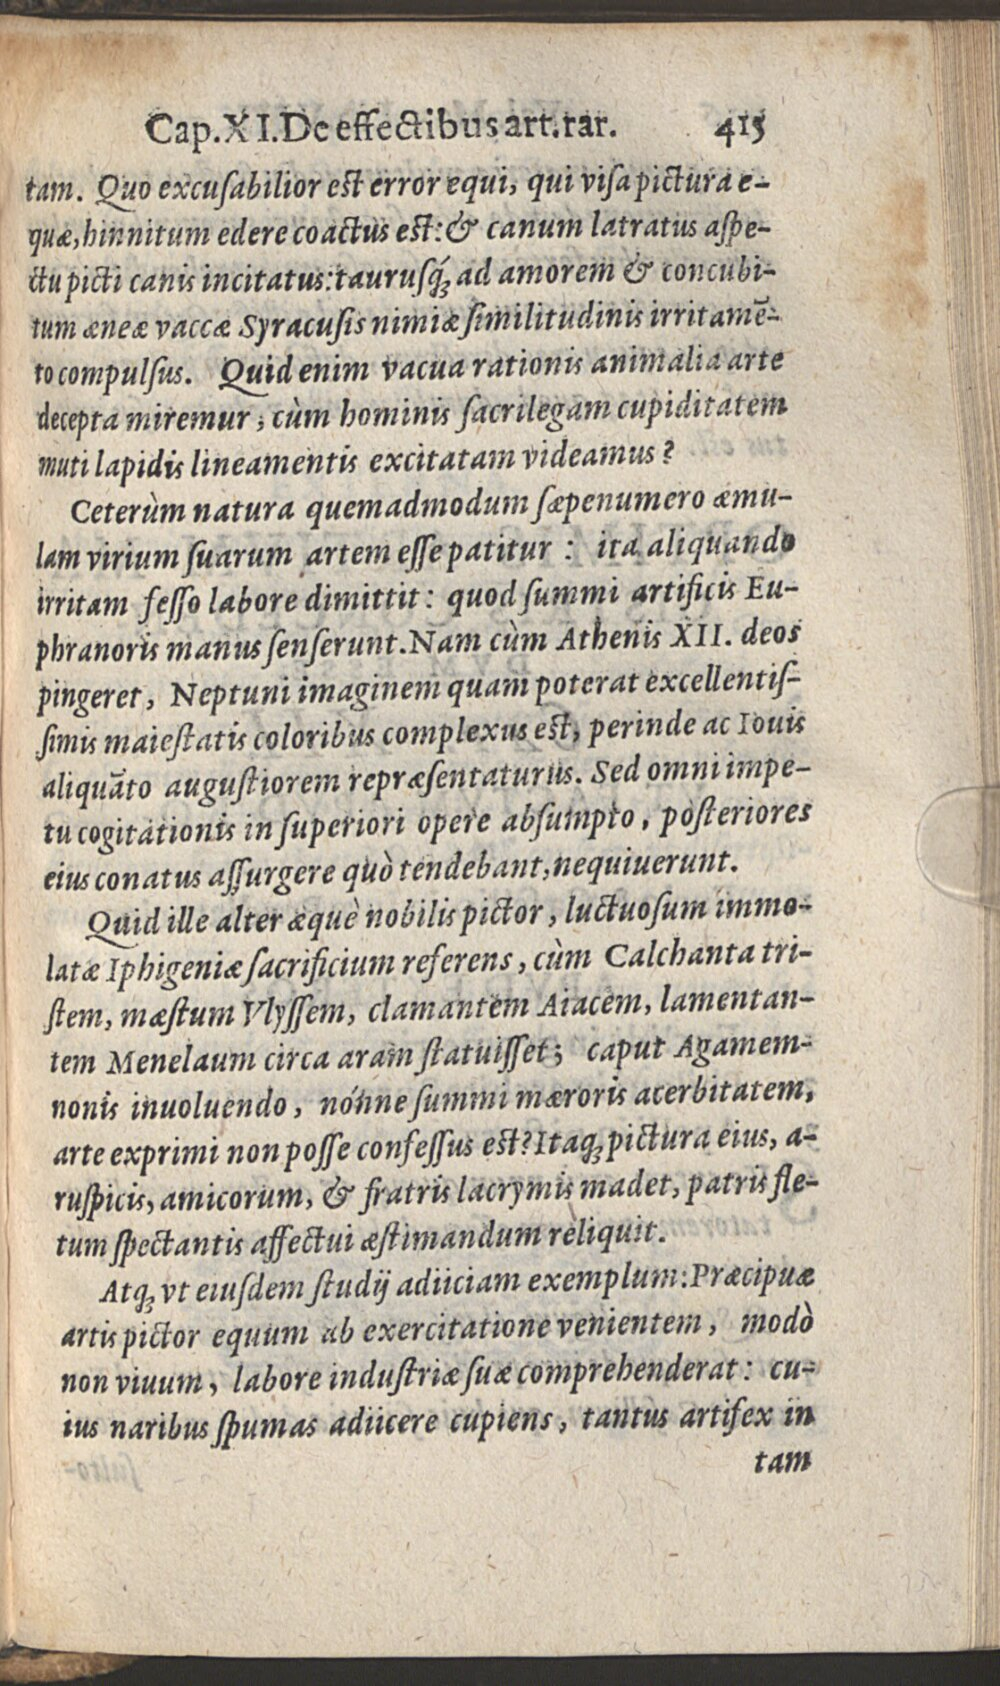 Cap. XI. De effectibus art. rar. 415
tam. Quo excuſabilior est error equi, qui viſa pictura e-
quæ, hinnitum edere coactus est: & canum latratus aſpe-
ctu picti canis incitatus: tauruſq́; ad amorem & concubi-
tum æneæ vaccæ Syracuſis nimiæ ſimilitudinis irritamē-
to compulſus. Quid enim vacua rationis animalia arte
decepta miremur, cùm hominis ſacrilegam cupiditatem
muti lapidis lineamentis excitatam videamus?
Ceterùm natura quemadmodum ſæpenumero æmu-
lam virium ſuarum artem eſſe patitur : ita aliquando
irritam feſſo labore dimittit : quod ſummi artificis Eu-
phranoris manus ſenſerunt. Nam cùm Athenis XII. deos
pingeret, Neptuni imaginem quam poterat excellentiſ-
ſimis maieſtatis coloribus complexus est, perinde ac Iouis
aliquāto auguſtiorem repræſentaturus. Sed omni impe-
tu cogitationis in ſuperiori opere abſumpto, poſteriores
eius conatus aſſurgere quò tendebant, nequiuerunt.
Quid ille alter æquè nobilis pictor, luctuoſum immo-
latæ Iphigeniæ ſacrificium referens, cùm Calchanta tri-
ſtem, mæſtum Vlyſſem, clamantem Aiacem, lamentan-
tem Menelaum circa aram ſtatuiſſet; caput Agamem-
nonis inuoluendo, nónne ſummi mæroris acerbitatem,
arte exprimi non poſſe confeſſus est? Itaq; pictura eius, a-
ruſpicis, amicorum, & fratris lacrymis madet, patris fle-
tum ſpectantis affectui æſtimandum reliquit.
Atq; vt eiuſdem ſtudij adiiciam exemplum: Præcipuæ
artis pictor equum ab exercitatione venientem, modò
non viuum, labore induſtriæ ſuæ comprehenderat : cu-
ius naribus ſpumas adiicere cupiens, tantus artifex in
tam